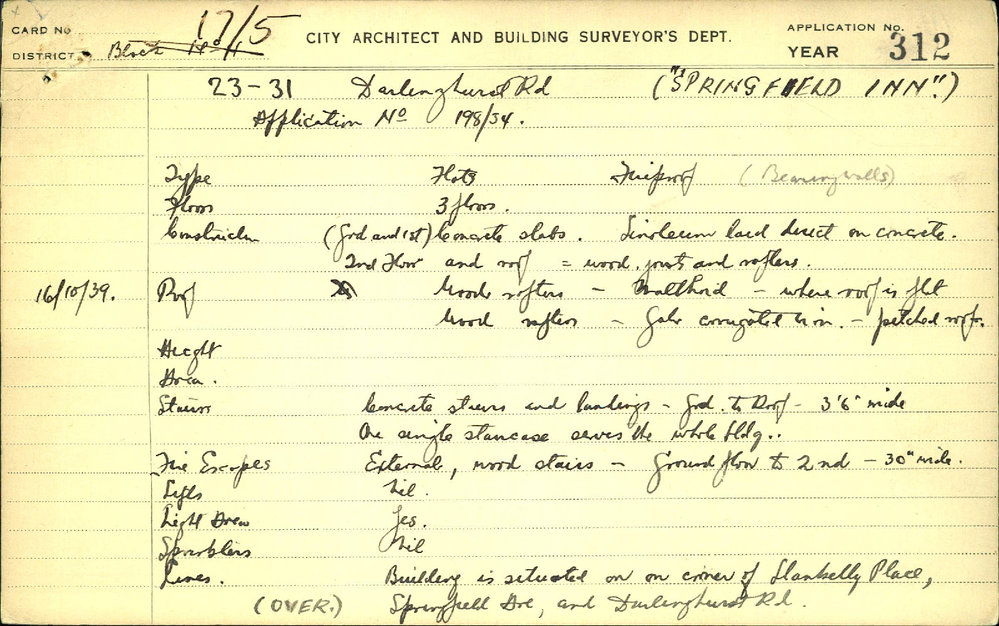 CARD No 17/5 CITY ARCHITECT AND BUILDING SURVEYOR'S DEPT. APPLICATION No.
DISTRICT Block No 11 YEAR 312
23-31 Darlinghurst Rd ("SPRINGFIELD INN".)
Application No 198/34.
Type Flats Fireproof (Bearing walls)
Floors 3 floors.
Construction (Grd and 1st) Concrete slabs. Linoleum laid direct on concrete.
2nd Floor and roof = wood joists and rafters.
16/10/39. Roof Wood rafters - Malthoid - where roof is flat
Wood rafters - Galv corrugated iron. - pitched roof.
Height
Area.
Stairs Concrete stairs and landings - Grd. to Roof - 3'6" wide
One single staircase serves the whole bldg..
Fire Escapes External, wood stairs - Ground floor to 2nd - 30" wide.
Lifts Nil.
Light Area Yes.
Sprinklers Nil
Lanes. Building is situated on on corner of Llankelly Place,
(OVER.) Springfield Ave, and Darlinghurst Rd.